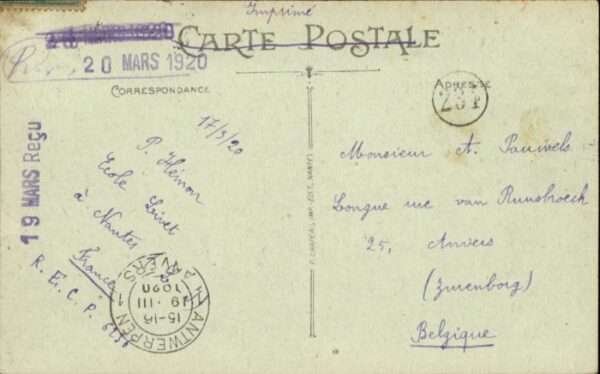 Imprimé
CARTE POSTALE
20 MARS 1920
CORRESPONDANCE
ADRESSE
19 MARS Reçu
17/3/20
P. Hémon
Ecole Livet
à Nantes
France
R. E. C. P.
ANTWERPEN 1
ANVERS
15-16
19 III
1920
Monsieur A. Pauwels
Longue rue van Ruusbroeck
25, Anvers
(Zurenborg)
Belgique